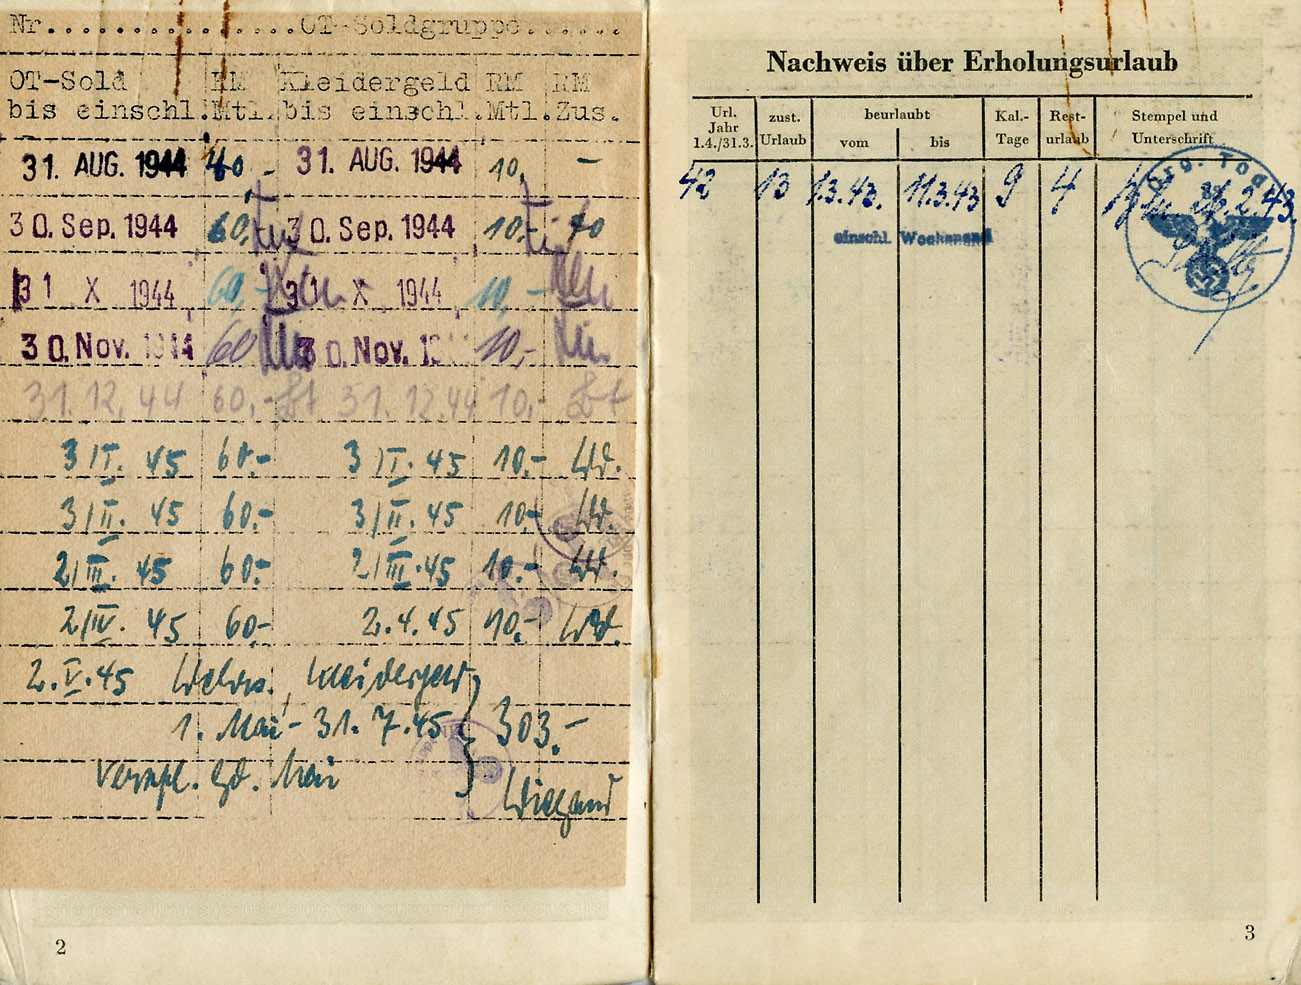 Nr................OT-Soldgruppe.......
OT-Sold RM Kleidergeld RM RM
bis einschl. Mtl. bis einschl. Mtl. Zus.
31. AUG. 1944 40,- 31. AUG. 1944 10,- –
30. Sep. 1944 60,- 30. Sep. 1944 10,- 40
31 X 1944 60,- 31 X 1944 10,-
30. Nov. 1944 60 30. Nov. 1 10,-
31.12.44 60,- 31.12.44 10,-
3/I. 45 60.- 3/I. 45 10.- Wd.
3/II. 45 60.- 3/II. 45 10.- Wd.
2/III. 45 60.- 2/III. 45 10.- Wd.
2/IV. 45 60.- 2.4.45 10.- Wd.
2.V.45 Kleidergeld
1. Mai - 31.7.45 303.-
verpfl. gd. Mai
Wiegand
2
Nachweis über Erholungsurlaub
Url. Jahr 1.4./31.3. zust. Urlaub beurlaubt vom bis Kal.-Tage Rest-urlaub Stempel und Unterschrift
42 13 1.3.43. 11.3.43 9 4 2.43
einschl. Wochenend
Org. Tod
3